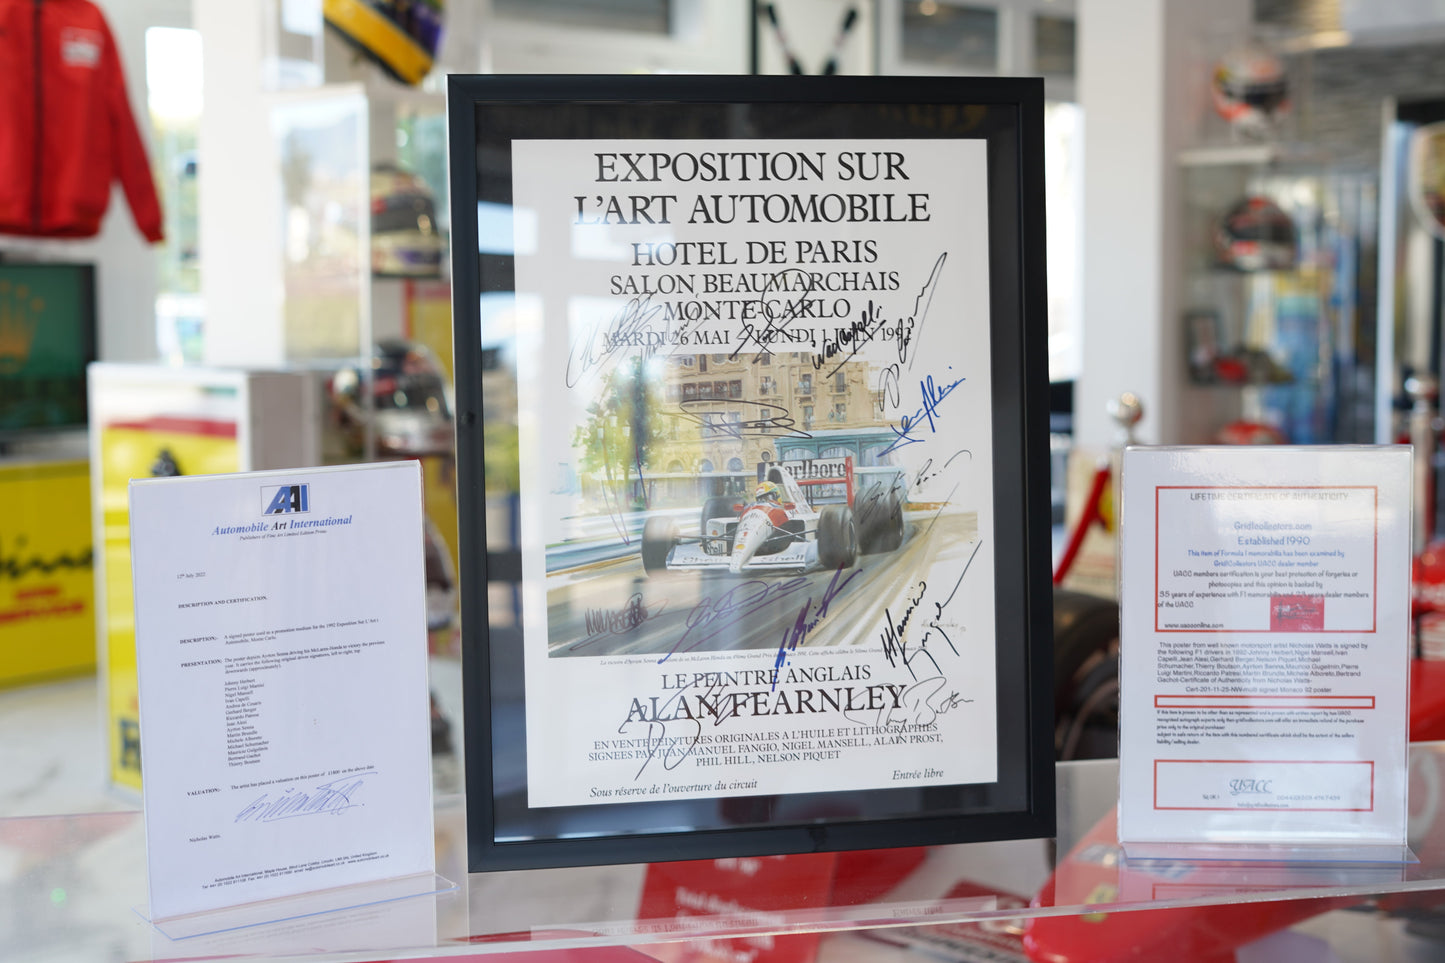 AAI
Automobile Art International
Publishers of Fine Art Limited Edition Prints
12th July 2022
DESCRIPTION AND CERTIFICATION.
DESCRIPTION:- A signed poster used as a promotion medium for the 1992 Exposition Sur L'Art
Automobile, Monte Carlo.
PRESENTATION: The poster depicts Ayrton Senna driving his McLaren Honda to victory the previous
year. It carries the following original driver signatures, left to right, top
downwards (approximately):
Johnny Herbert
Pierre Luigi Martini
Nigel Mansell
Ivan Capelli
Andrea de Cesaris
Gerhard Berger
Riccardo Patrese
Jean Alesi
Ayrton Senna
Martin Brundle
Michele Alboreto
Michael Schumacher
Mauricio Gulgelmin
Bertrand Gachot
Thierry Boutsen
VALUATION:- The artist has placed a valuation on this poster of £1800 on the above date
Nicholas Watts
EXPOSITION SUR
L'ART AUTOMOBILE
HOTEL DE PARIS
SALON BEAUMARCHAIS
MONTE-CARLO
MARDI 26 MAI LUNDI 1 JUIN 1992
Marlboro
LE PEINTRE ANGLAIS
ALAN FEARNLEY
EN VENTE PEINTURES ORIGINALES A L'HUILE ET LITHOGRAPHIES
SIGNEES PAR JUAN-MANUEL FANGIO, NIGEL MANSELL, ALAIN PROST,
PHIL HILL, NELSON PIQUET
Sous réserve de l'ouverture du circuit
Entrée libre
LIFETIME CERTIFICATE OF AUTHENTICITY
Grid1collectors.com
Established 1990
This item of Formula 1 memorabilia has been examined by
Grid1Collectors UACC dealer member
UACC members certification is your best protection of forgeries or
photocopies and this opinion is backed by
35 years of experience with F1 memorabilia
of the UACC
www.uacconline.com
This poster from well known motorsport artist Nicholas Watts is signed by
the following F1 drivers in 1992-Johnny Herbert,Nigel Mansell,Ivan
Capelli,Jean Alesi,Gerhard Berger,Nelson Piquet,Michael
Schumacher,Thierry Boutson,Ayrton Senna,Maurico Gugelmin,Pierre
Luigi Martini,Riccardo Patresi,Martin Brundle,Michele Alboreto,Bertrand
Gachot-Certificate of Authenticity from Nicholas Watts-
Cert-201-11-25-NW-multi signed Monaco 92 poster
UACC